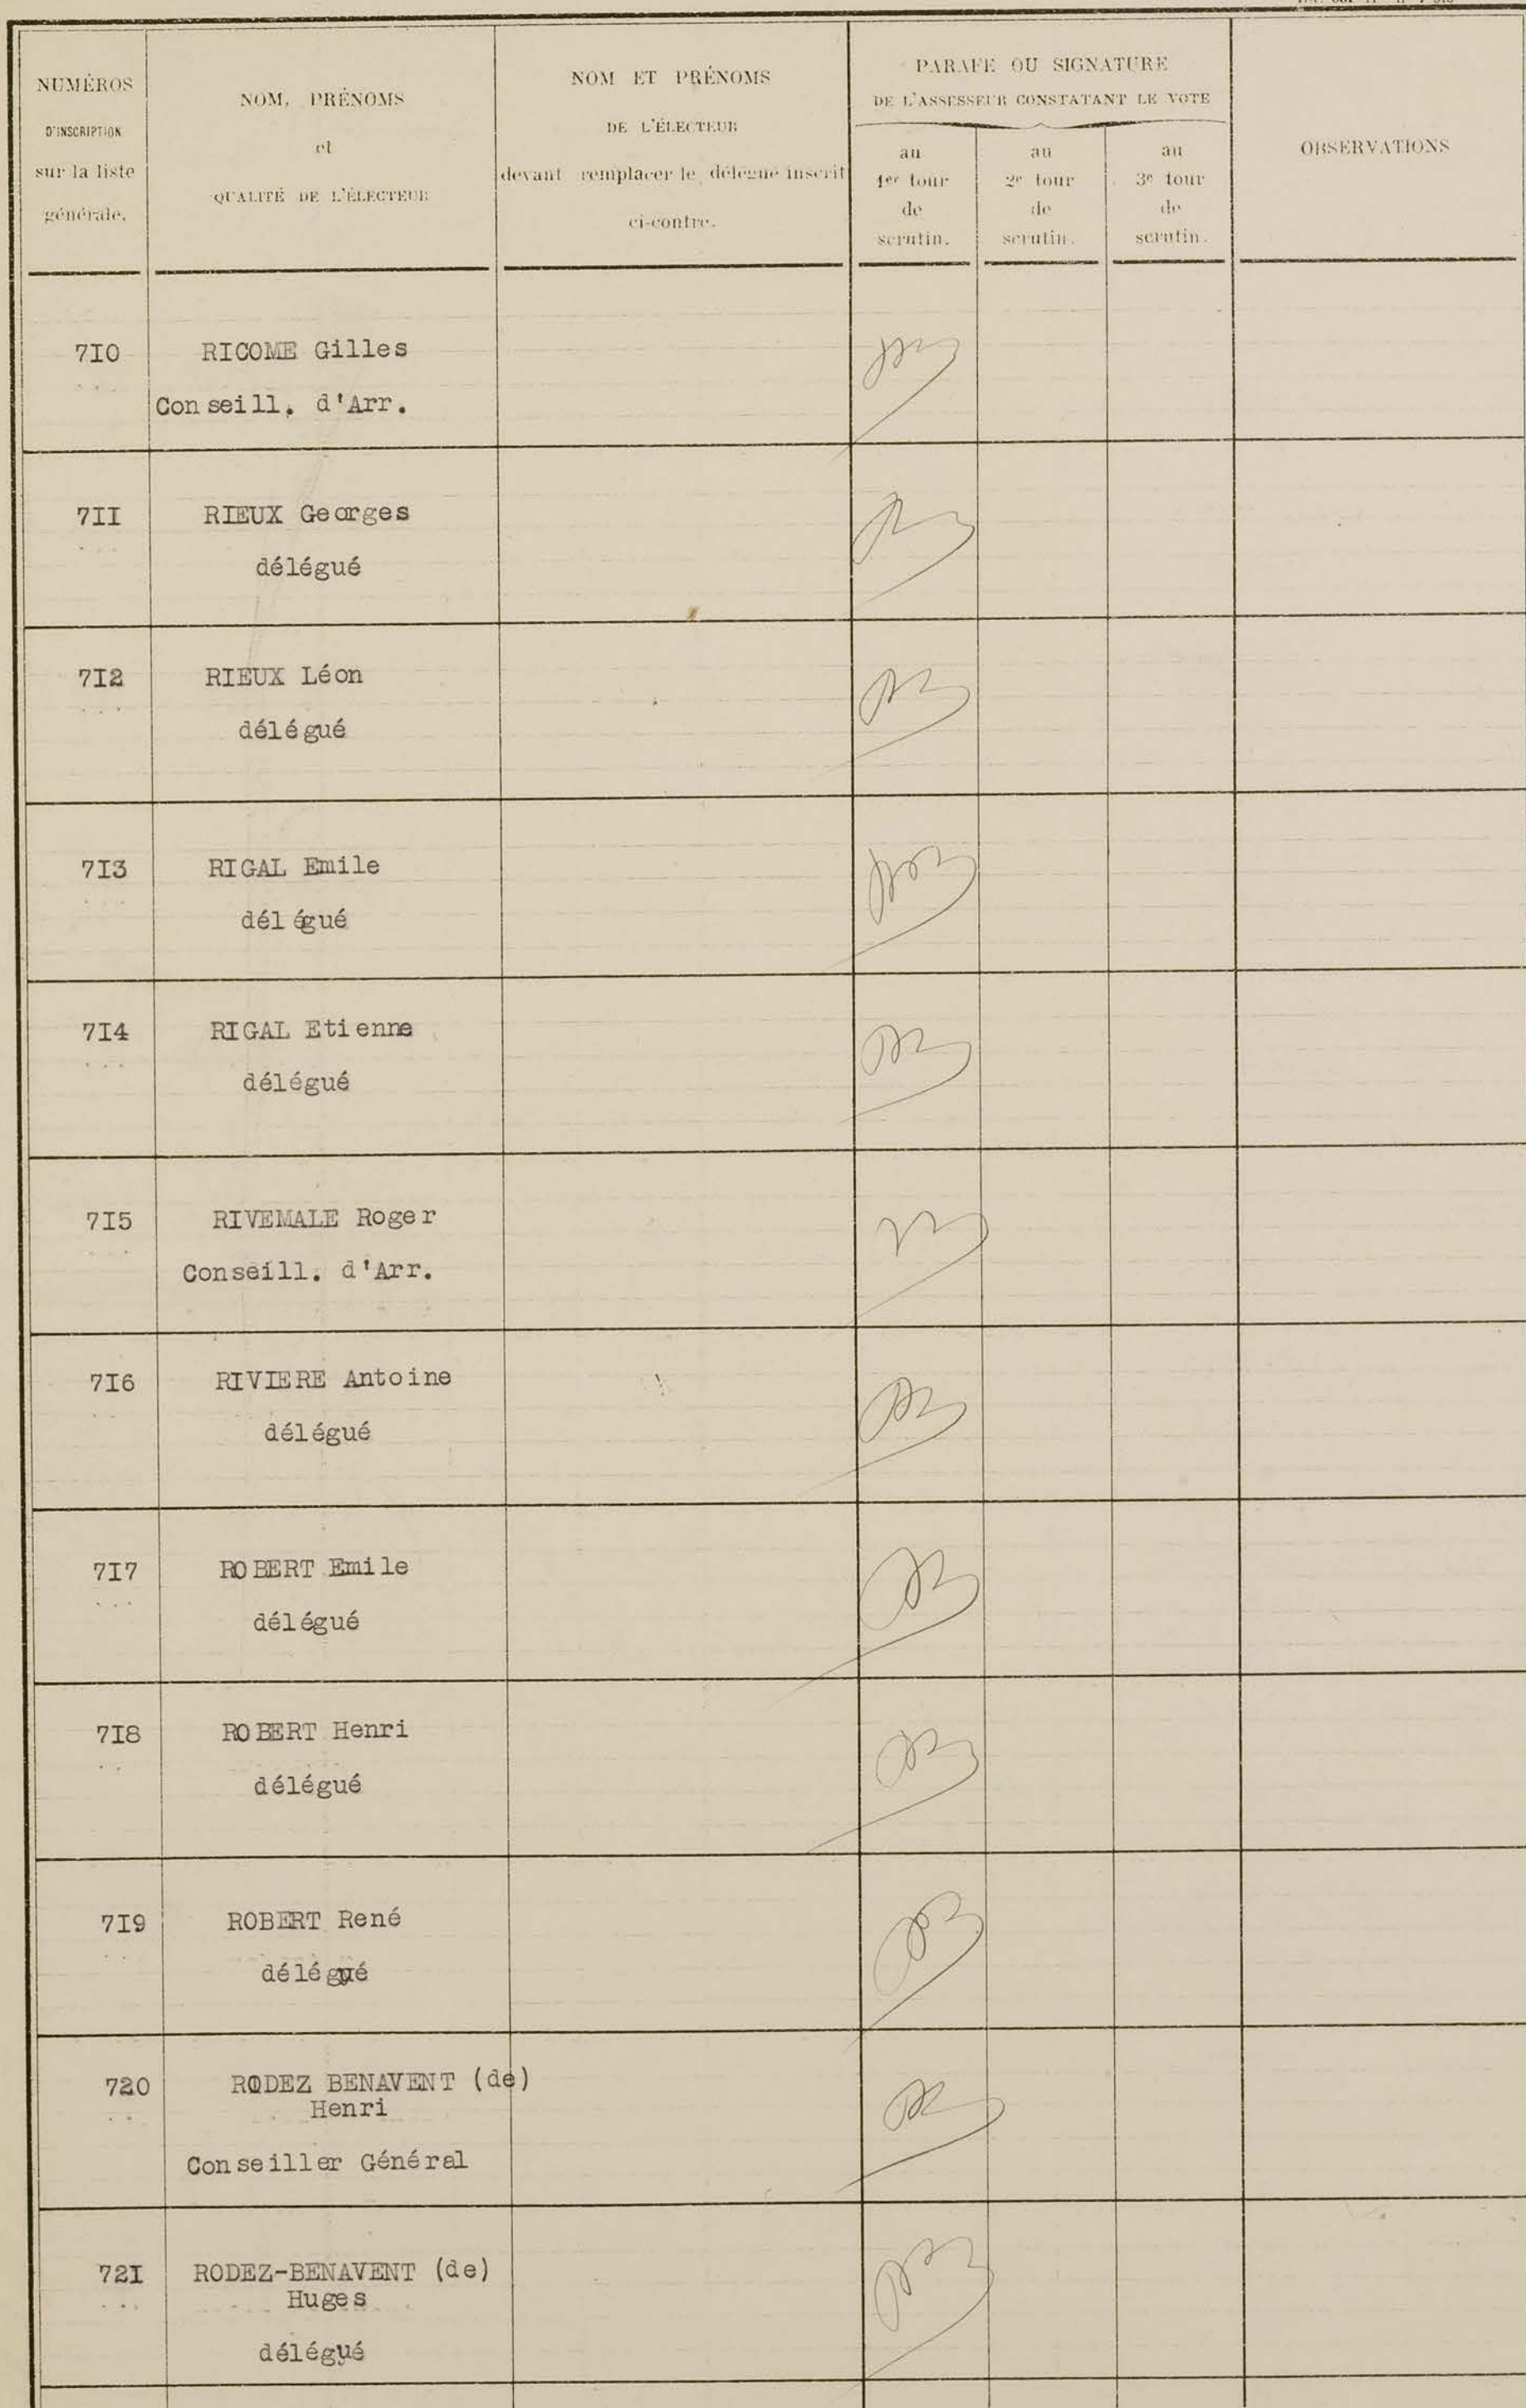 NUMÉROS
D'INSCRIPTION
sur la liste
générale.
NOM, PRÉNOMS
et
QUALITÉ DE L'ÉLECTEUR
NOM ET PRÉNOMS
DE L'ÉLECTEUR
devant remplacer le délégué inscrit
ci-contre.
PARAFE OU SIGNATURE
DE L'ASSESSEUR CONSTATANT LE VOTE
au
1er tour
de
scrutin.
au
2e tour
de
scrutin.
au
3e tour
de
scrutin.
OBSERVATIONS
7I0 RICOME Gilles
Conseill. d'Arr.
7II RIEUX Georges
délégué
7I2 RIEUX Léon
délégué
7I3 RIGAL Emile
délégué
7I4 RIGAL Etienne
délégué
7I5 RIVEMALE Roger
Conseill. d'Arr.
7I6 RIVIERE Antoine
délégué
7I7 ROBERT Emile
délégué
7I8 ROBERT Henri
délégué
7I9 ROBERT René
délégué
720 RODEZ BENAVENT (de)
Henri
Conseiller Général
72I RODEZ-BENAVENT (de)
Huges
délégué